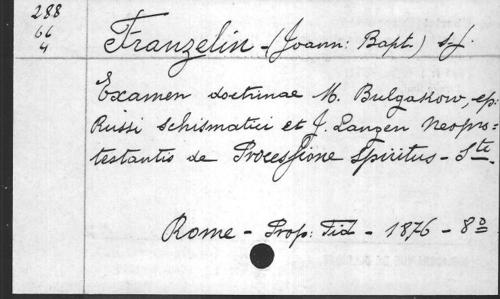 288
66
4
Franzelin - (Joann: Bapt.) sj.
Examen doctrinae M. Bulgakow, ep.
Russi schismatici et J. Langen neopro=
testantis de Processione Spiritus - Ste.
Rome - Prop: Fid - 1876 - 8o